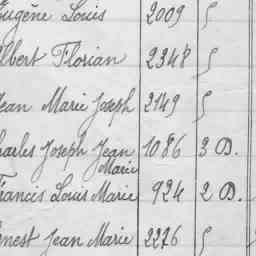 Eugène Louis 2009 S
Albert Florian 2348 S
Jean Marie Joseph 2149 S
Charles Joseph Jean 1086 3 D.
Marie
Francis Louis Marie 924 2 D.
Ernest Jean Marie 2276 S